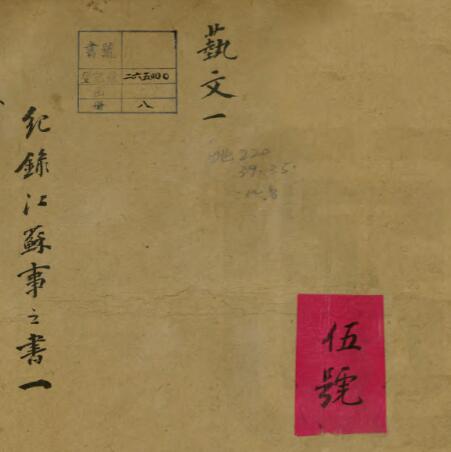 藝文一
書號
登記號 二六五四〇〇
冊 八
220
39.35.
紀錄江蘇事之書一
伍號